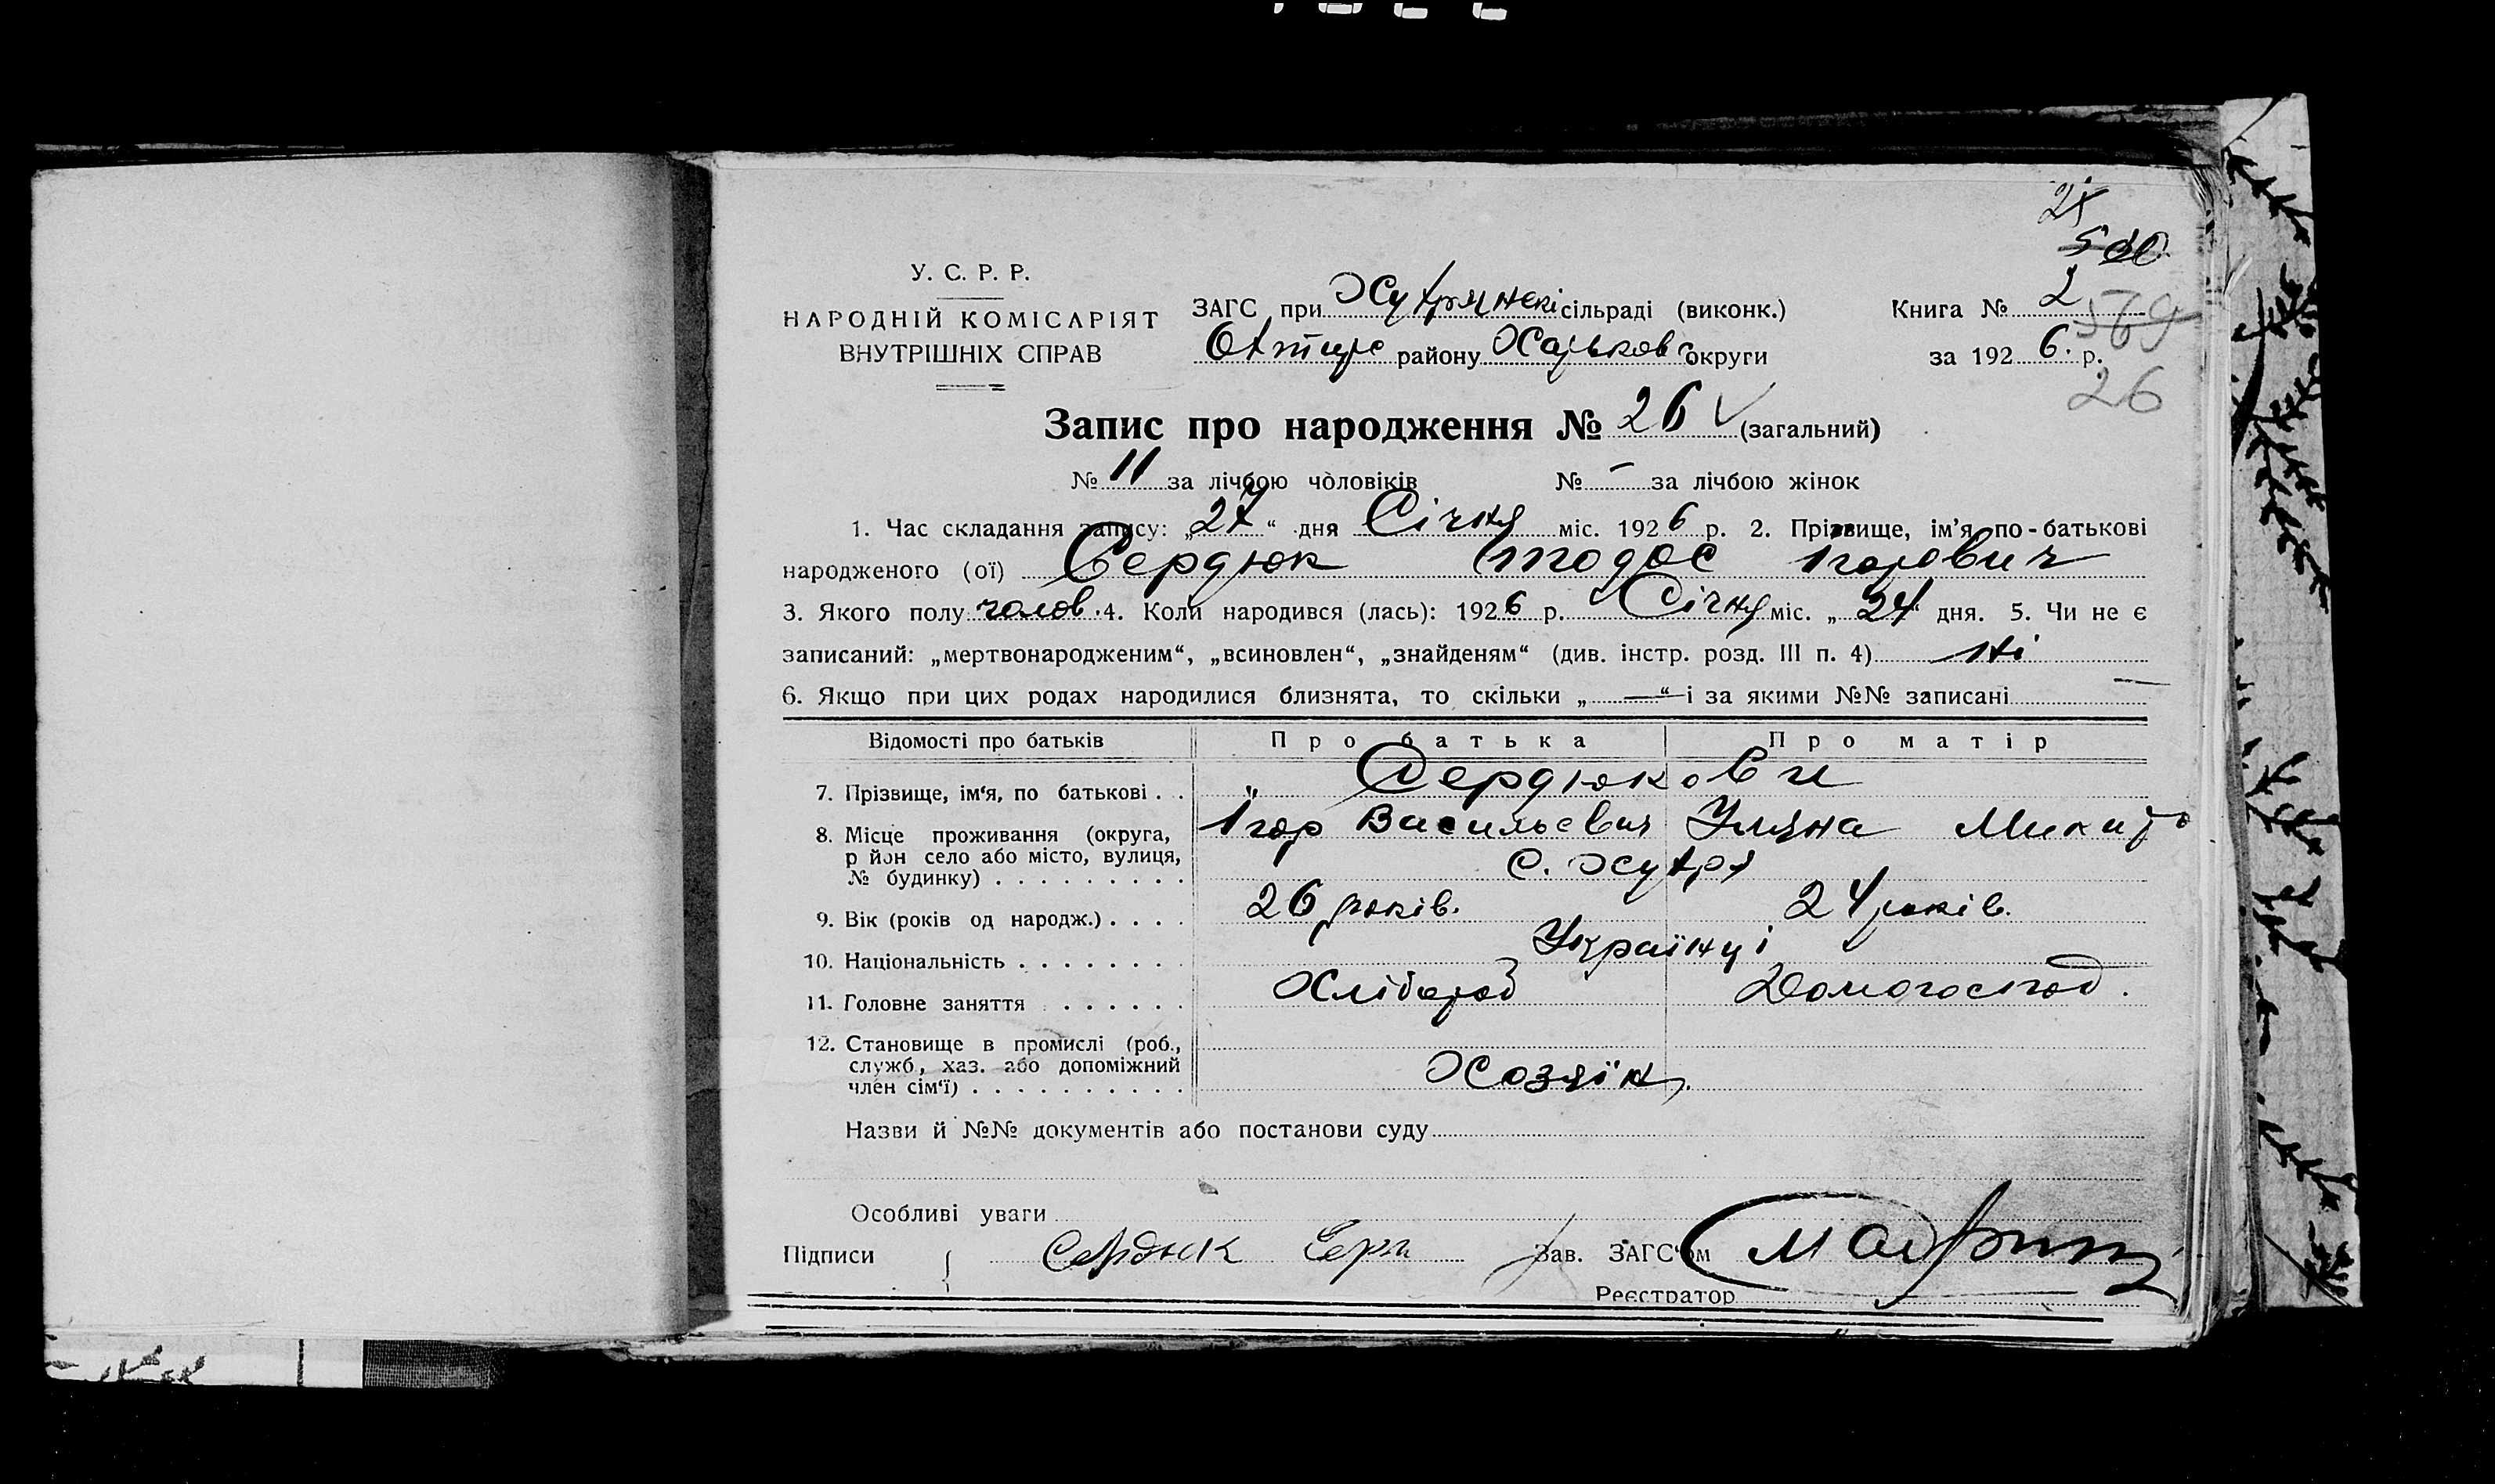 2х
580
У. С. Р. Р.
НАРОДНІЙ КОМІСАРІЯТ
ВНУТРІШНІХ СПРАВ
ЗАГС при Хутрянскі сільраді (виконк.)
Охтир району Харьков округи
Книга № 2
569
за 192 6. р.
26
Запис про народження № 26 (загальний)
№ 11 за лічбою чоловіків № – за лічбою жінок
1. Час складання запису: „27“ дня Січня міс. 1926 р. 2. Прізвище, ім’я по-батькові
народженого (ої) Сердюк Тодос Ігорович
3. Якого полу чолов. 4. Коли народився (лась): 1926 р. Січня міс. „24“ дня. 5. Чи не є
записаний: „мертвонародженим“, „всиновлен“, „знайденям“ (див. інстр. розд. III п. 4) Ні
6. Якщо при цих родах народилися близнята, то скільки „—“ і за якими №№ записані —
Відомості про батьків Про батька Про матір
7. Прізвище, ім‘я, по батькові . . „ Сердюкови
8. Місце проживання (округа, Ігор Васильевич Уляна Микит
р йон село або місто, вулиця,
№ будинку) . . . . . . . . . С. Хутря
9. Вік (років од народж.) . . . . 26 років. 24 років.
10. Національність . . . . . . . . Українці
11. Головне заняття . . . . . . Хлібороб Домогоспод.
12. Становище в промислі (роб.,
служб, хаз. або допоміжний
член сім‘ї) . . . . . . . . . . Хозяїн
Назви й №№ документів або постанови суду
Особливі уваги
Підписи Сердюк Зав. ЗАГС‘ом
Реєстратор